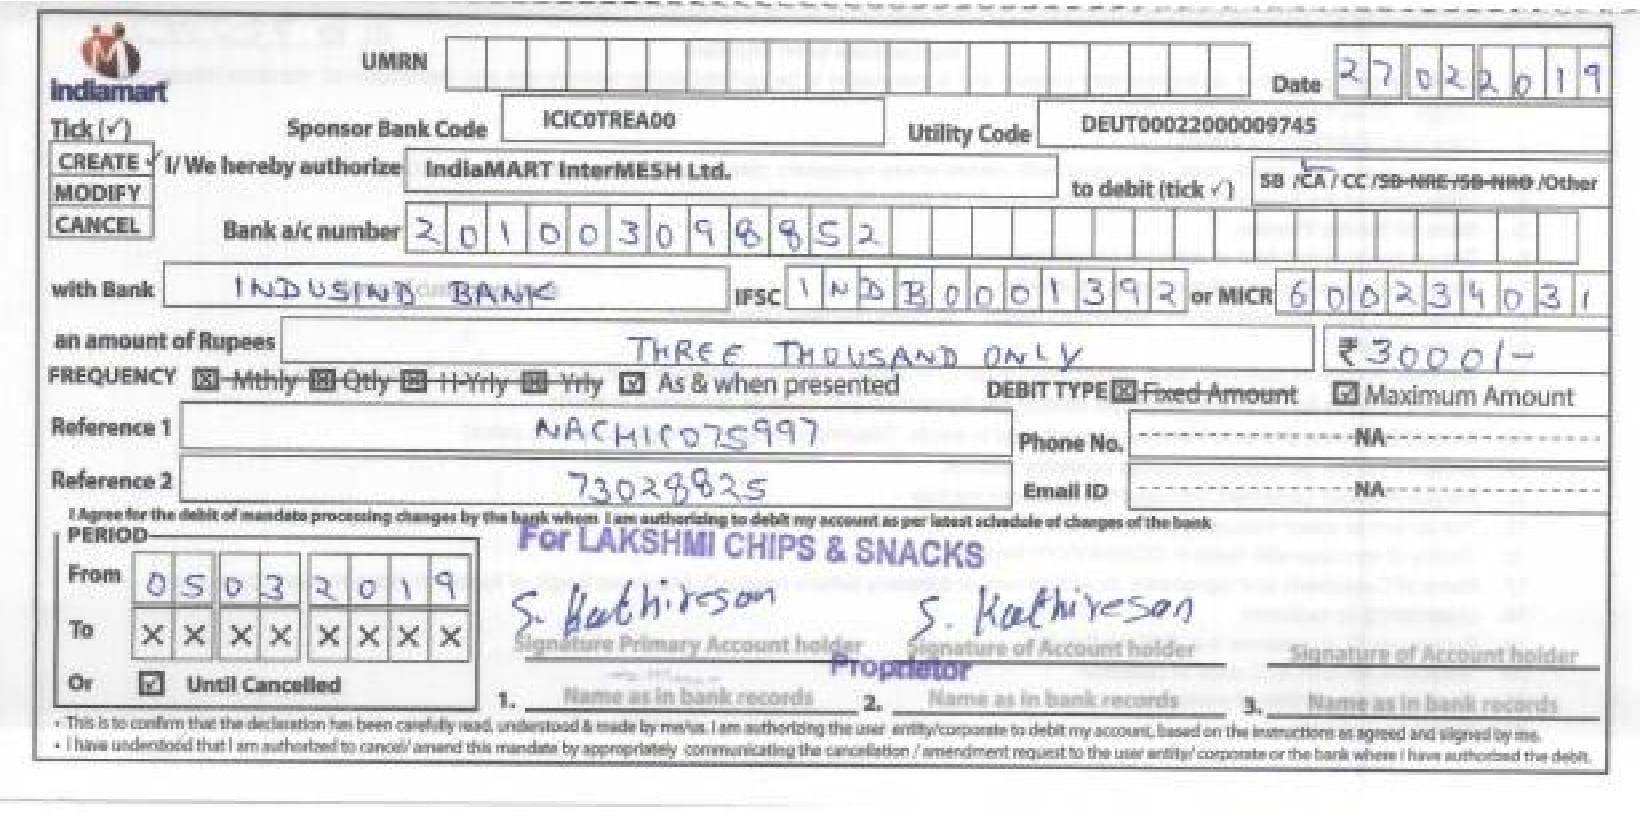 indiamart
UMRN
Date 27022019
Tick (✓)
Sponsor Bank Code ICIC0TREA00 Utility Code DEUT00022000009745
CREATE ✓ I/ We hereby authorize IndiaMART InterMESH Ltd. to debit (tick ✓) SB /CA / CC /SB-NRE /SB-NRO /Other
MODIFY
CANCEL
Bank a/c number 201003098852
with Bank INDUSIND BANK IFSC INDB0001392 or MICR 600234031
an amount of Rupees THREE THOUSAND ONLY ₹ 3000/-
FREQUENCY ☒ Mthly ☒ Qtly ☒ H-Yrly ☒ Yrly ☑ As & when presented DEBIT TYPE ☒ Fixed Amount ☑ Maximum Amount
Reference 1 NACHIC075997 Phone No. NA
Reference 2 73028825 Email ID NA
I Agree for the debit of mandate processing charges by the bank whom I am authorizing to debit my account as per latest schedule of charges of the bank
PERIOD
For LAKSHMI CHIPS & SNACKS
From 05032019
S. Kathiresan S. Kathiresan
To XXXXXXXX
Signature Primary Account holder Signature of Account holder Signature of Account holder
Proprietor
Or ☑ Until Cancelled
1. Name as in bank records 2. Name as in bank records 3. Name as in bank records
• This is to confirm that the declaration has been carefully read, understood & made by me/us. I am authorizing the user entity/corporate to debit my account, based on the instructions as agreed and signed by me.
• I have understood that I am authorized to cancel/ amend this mandate by appropriately communicating the cancellation / amendment request to the user entity/ corporate or the bank where I have authorized the debit.